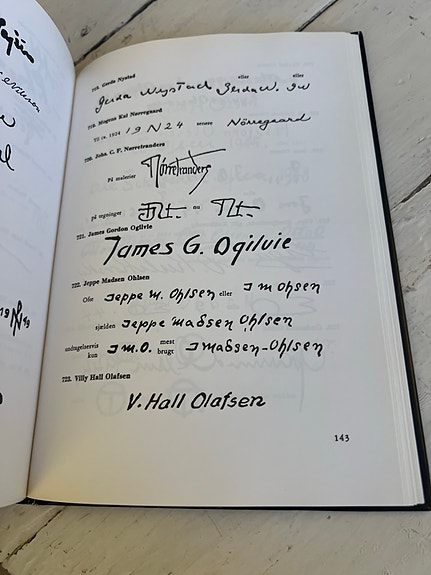 718. Gerda Nystad
eller eller
Gerda Nystad Gerda N. GN
719. Magnus Kai Nørregaard
Til ca. 1924 19 N 24 senere Nørregaard
720. John C. F. Nørretranders
På malerier Nørretranders
på tegninger nu
721. James Gordon Ogilvie
James G. Ogilvie
722. Jeppe Madsen Ohlsen
Ofte Jeppe M. Ohlsen eller J M Ohsen
sjælden Jeppe Madsen Ohlsen
undtagelsesvis kun J M.O. mest brugt J Madsen-Ohlsen
723. Villy Hall Olafsen
V. Hall Olafsen
143
19 49